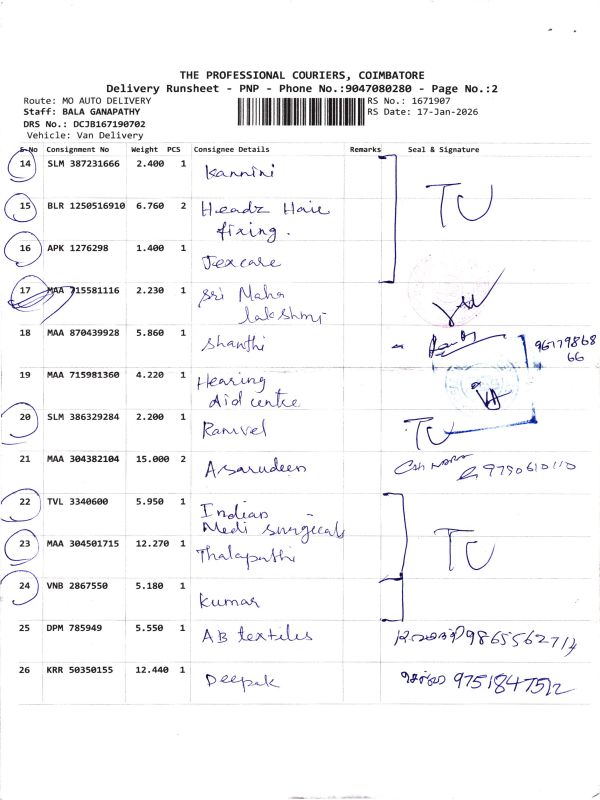 THE PROFESSIONAL COURIERS, COIMBATORE
Delivery Runsheet - PNP - Phone No.:9047080280 - Page No.:2
Route: MO AUTO DELIVERY
RS No.: 1671907
Staff: BALA GANAPATHY
RS Date: 17-Jan-2026
DRS No.: DCJB167190702
Vehicle: Van Delivery
S-No Consignment No Weight PCS Consignee Details Remarks Seal & Signature
14 SLM 387231666 2.400 1 Kannini
TU
15 BLR 1250516910 6.760 2 Headz Hair
fixing.
16 APK 1276298 1.400 1 Texcare
17 MAA 715581116 2.230 1 Sri Maha
lakshmi
18 MAA 870439928 5.860 1 Shanthi
96179868
66
19 MAA 715981360 4.220 1 Hearing
Aid centre
20 SLM 386329284 2.200 1 Ramvel TU
21 MAA 304382104 15.000 2 Asarudeen 9790610110
22 TVL 3340600 5.950 1 Indian
Medi surgicals
23 MAA 304501715 12.270 1 Thalapathi TU
24 VNB 2867550 5.180 1 Kumar
25 DPM 785949 5.550 1 AB textiles 9865562714
26 KRR 50350155 12.440 1 Deepak 9751847512